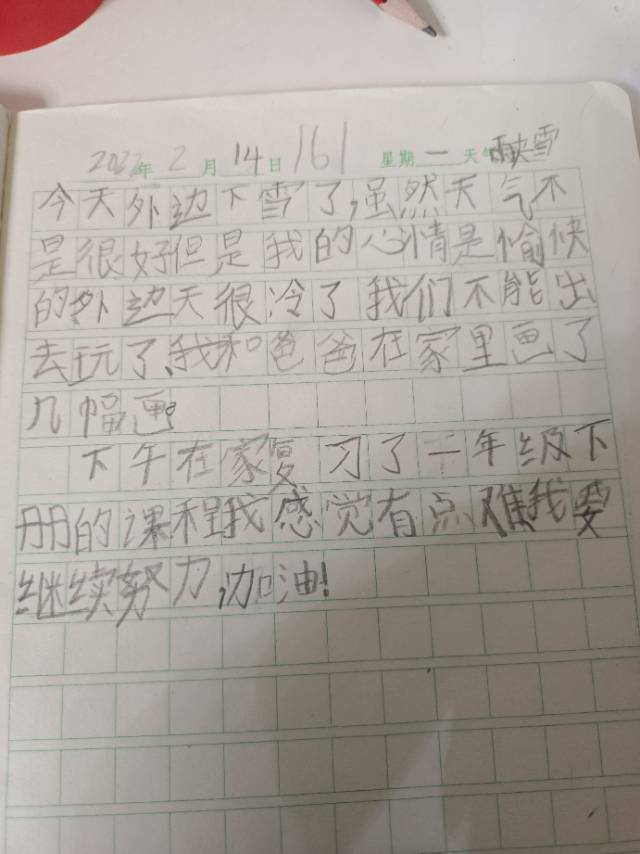 2022年2月14日161 星期一 天气雨夹雪
今天外边下雪了,虽然天气不
是很好但是我的心情是愉快
的外边天很冷了我们不能出
去玩了、我和爸爸在家里画了
几幅画。
下午在家复习了二年级下
册的课程我感觉有点难我要
继续努力,加油!